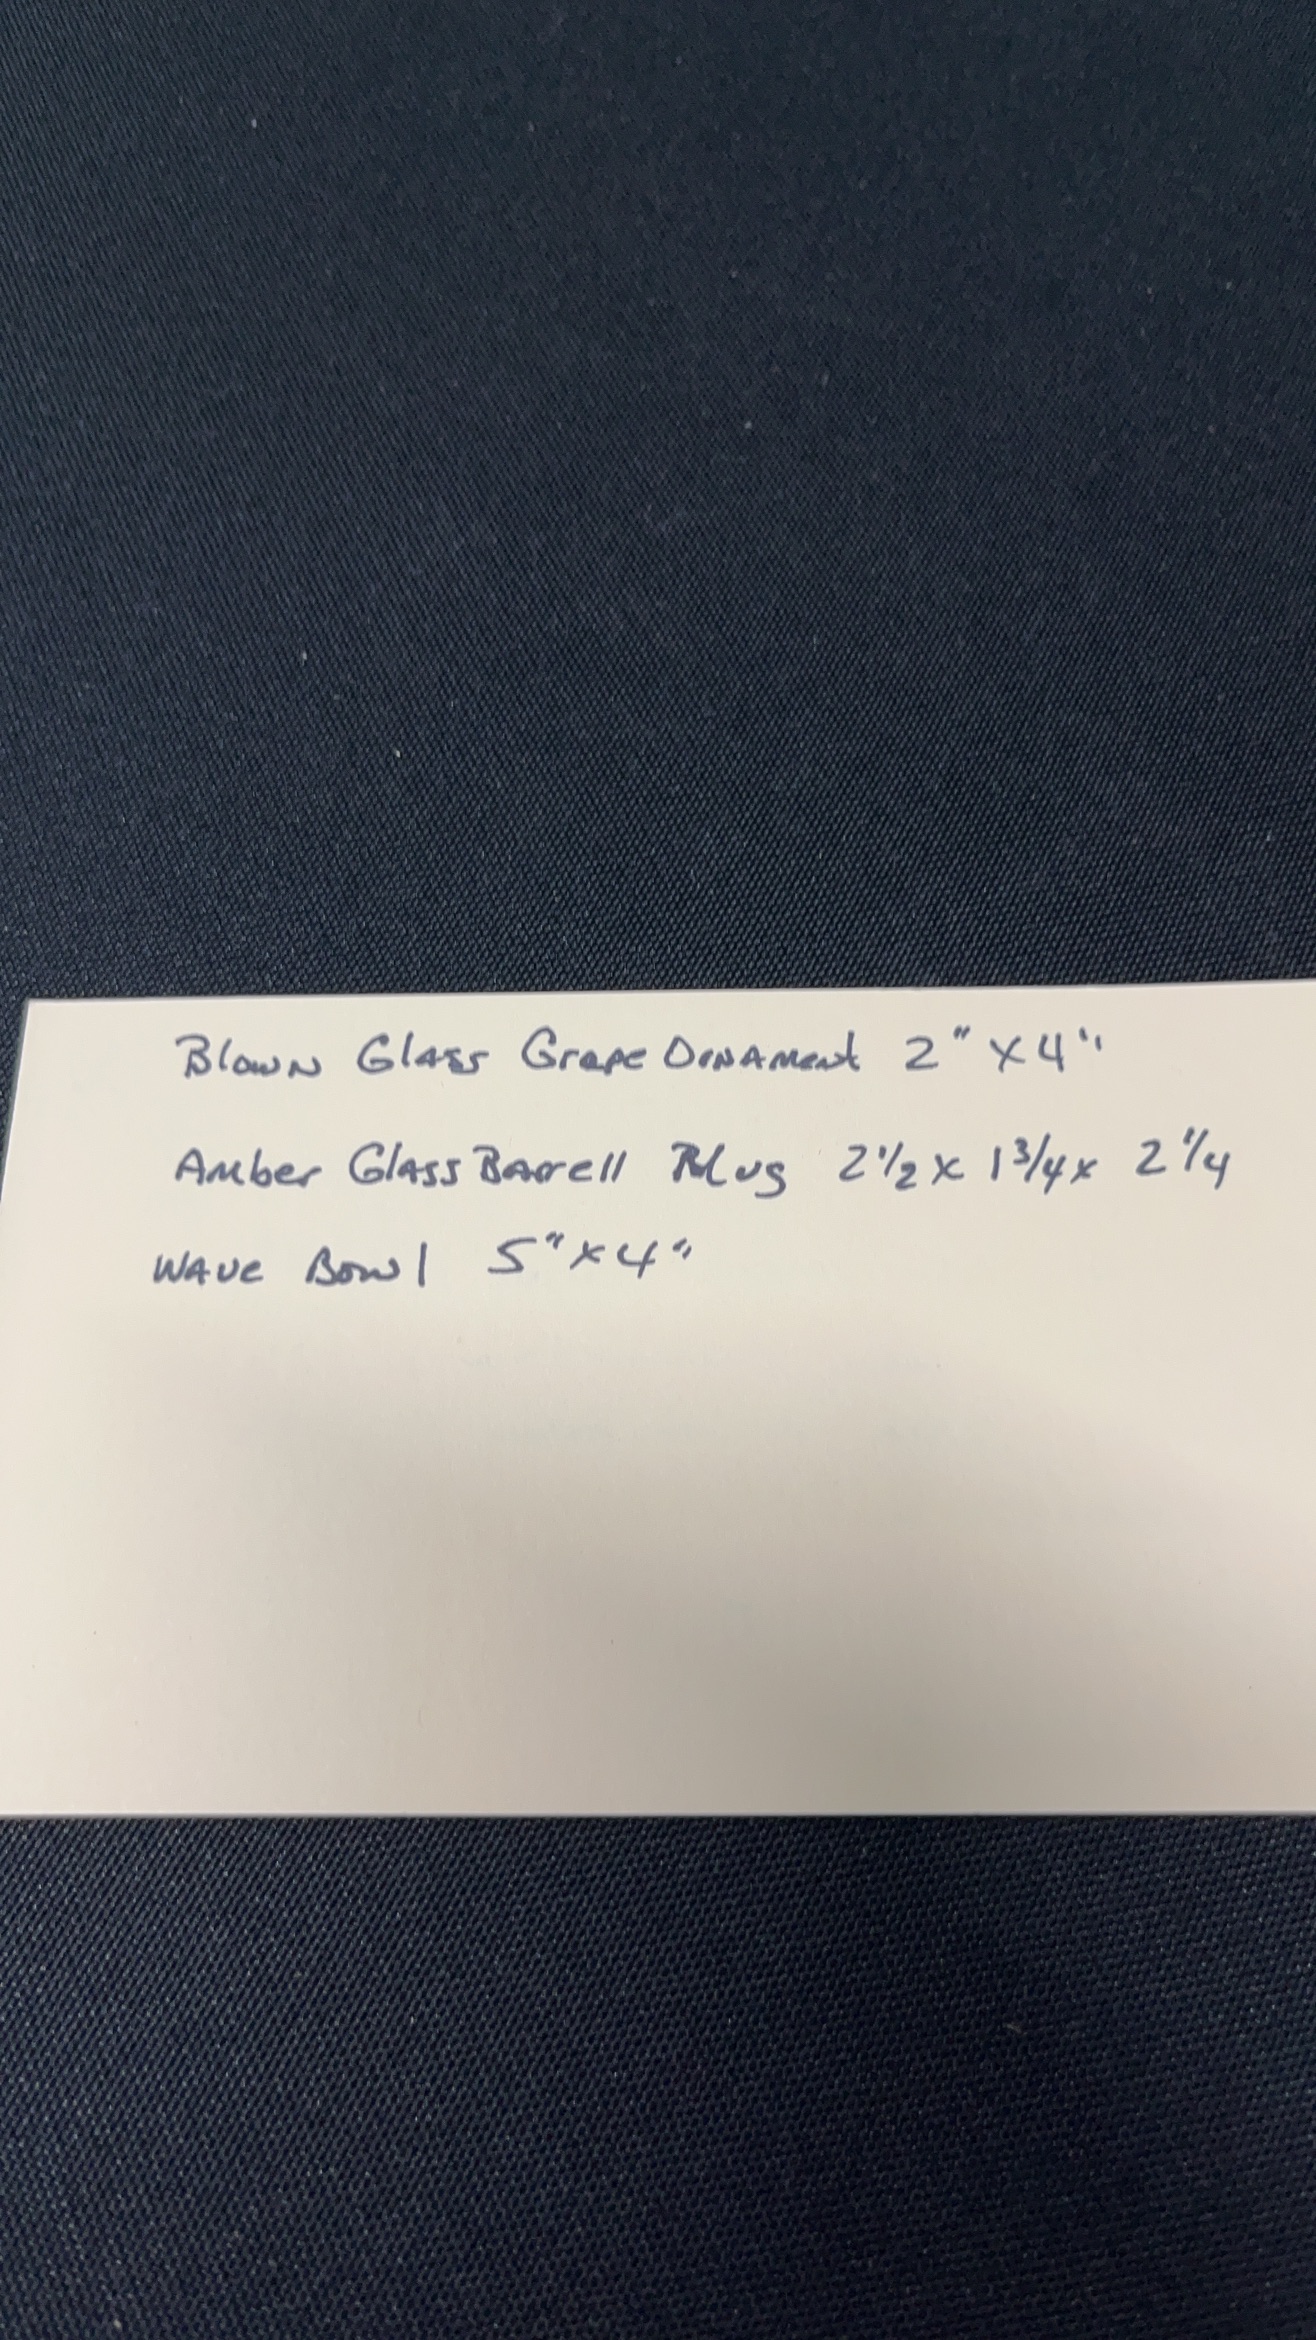 Blown Glass Grape Ornament 2" x 4"
Amber Glass Barrell Mug 2 1/2 x 1 3/4 x 2 1/4
Wave Bowl 5" x 4"